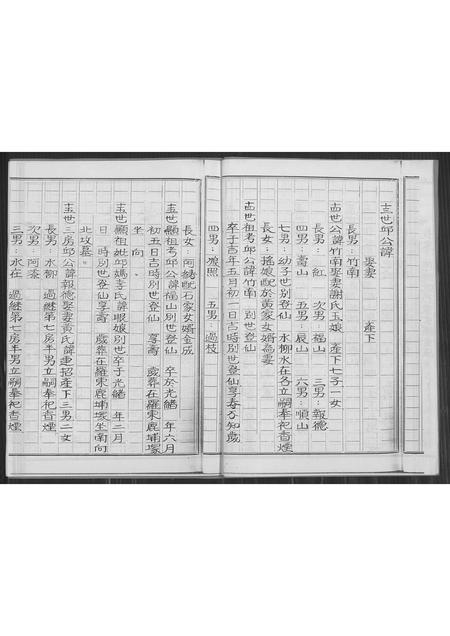 十三世邱公諱
娶妻 產下
長男：竹南
十四世公諱竹南娶妻謝氏玉娘 產下七子一女
長男：紅 次男：福山 三男：報德
四男：嵩山 五男：辰山 六男：順山
七男：幼子世別登仙 水柳水在各立嗣奉祀香煙
長女：搖娘配於黃家女婿為妻
十四世祖考邱公諱竹南 別世登仙
卒于吉年五月初一日吉時別世登仙享壽 歲
四男：娘照 五男：過枝
長女：阿 配石家女婿金成
十五世顯祖考邱公諱福山別世登仙 卒於光緒 年六月
初五日吉時別世登仙 享壽 歲葬在羅東鹿埔塚
坐 向 、
十五世顯祖妣邱媽李氏諱眼娘別世卒于光緒 年二月
日 時別世登仙享壽 歲葬在羅東鹿埔塚坐南向
北坟墓。
十五世三房邱公諱報德娶妻黃氏諱連招產下三男二女
長男：水柳 過継第七房半男立嗣奉祀香煙
次男：阿添
三男：水在 過継第七房半男立嗣奉祀香煙